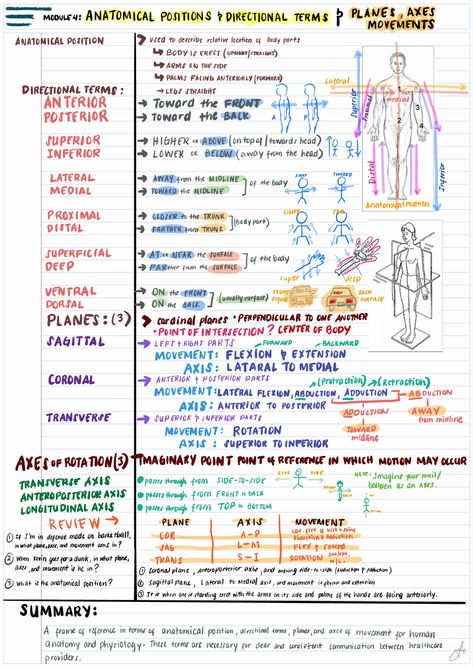 MODULE 4: ANATOMICAL POSITIONS & DIRECTIONAL TERMS & PLANES, AXES
MOVEMENTS
ANATOMICAL POSITION
used to describe relative location of body parts
BODY IS ERECT (UPRIGHT/STRAIGHT)
ARMS ON THE SIDE
PALMS FACING ANTERIORLY (FORWARD)
LEGS STRAIGHT
DIRECTIONAL TERMS:
ANTERIOR
Toward the FRONT
POSTERIOR
Toward the BACK
A
P
SUPERIOR
HIGHER or ABOVE (on top of/towards head)
INFERIOR
LOWER or BELOW (away from the head)
LATERAL
AWAY from the MIDLINE
MEDIAL
TOWARD the MIDLINE
of the body
AWAY
TOWARD
PROXIMAL
CLOZER to the TRUNK
DISTAL
FARTHER from TRUNK
(Body part)
SUPERFICIAL
AT or NEAR the SURFACE
DEEP
FARther from the SURFACE
of the body
DEEP
VENTRAL
ON the FRONT
DORSAL
ON the BACK
(usually surface)
Lateral
Medial
Superior
Proximal
Distal
Inferior
Anatomical Position
1
2
3
4
PLANES: (3)
cardinal planes • PERPENDICULAR TO ONE ANOTHER
• POINT OF INTERSECTION? CENTER OF BODY
SAGITTAL
LEFT & RIGHT PARTS
FORWARD
BACKWARD
MOVEMENT: FLEXION & EXTENSION
AXIS: LATARAL TO MEDIAL
CORONAL
ANTERIOR & POSTERIOR PARTS
(Protraction)
(Retraction)
MOVEMENT: LATERAL FLEXION, ABDUCTION, ADDUCTION
AXIS: ANTERIOR TO POSTERIOR
ABDUCTION
AWAY
from midline
ADDUCTION
TOWARD
midline
TRANSVERSE
SUPERIOR & INFERIOR PARTS
MOVEMENT: ROTATION
AXIS: SUPERIOR TO INFERIOR
AXES OF ROTATION (3)
IMAGINARY POINT POINT OF REFERENCE IN WHICH MOTION MAY OCCUR
TRANSVERSE AXIS
passes through from SIDE-TO-SIDE
ANTEROPOSTERIOR AXIS
passes through from FRONT to BACK
LONGITUDINAL AXIS
passes through from TOP to BOTTOM
SIDE
SIDE
NOTE: Imagine your pencil/
ballpen as an AXES.
REVIEW
PLANE
AXIS
MOVEMENT
COR
A-P
SAG
L-M
FLEX & EXTEND
TRANS
S-I
ROTATION
① If I'm in defense mode on basketball,
in what plane, axes, and movement am I in?
② When goes for a dunk, in what plane,
axes, and movement is he in?
③ What is the anatomical position?
① Coronal plane, anteroposterior axis, and moving side-to-side (abduction & adduction)
② Sagittal plane, Lateral to medial axis, and movement is flexion and extension
③ It is when one is standing erect with the arms on its side and palms of the hands are facing anteriorly.
SUMMARY:
A frame of reference in terms of anatomical position, directional terms, planes, and axes of movement for human
anatomy and physiology. These terms are necessary for clear and consistent communication between healthcare
providers.